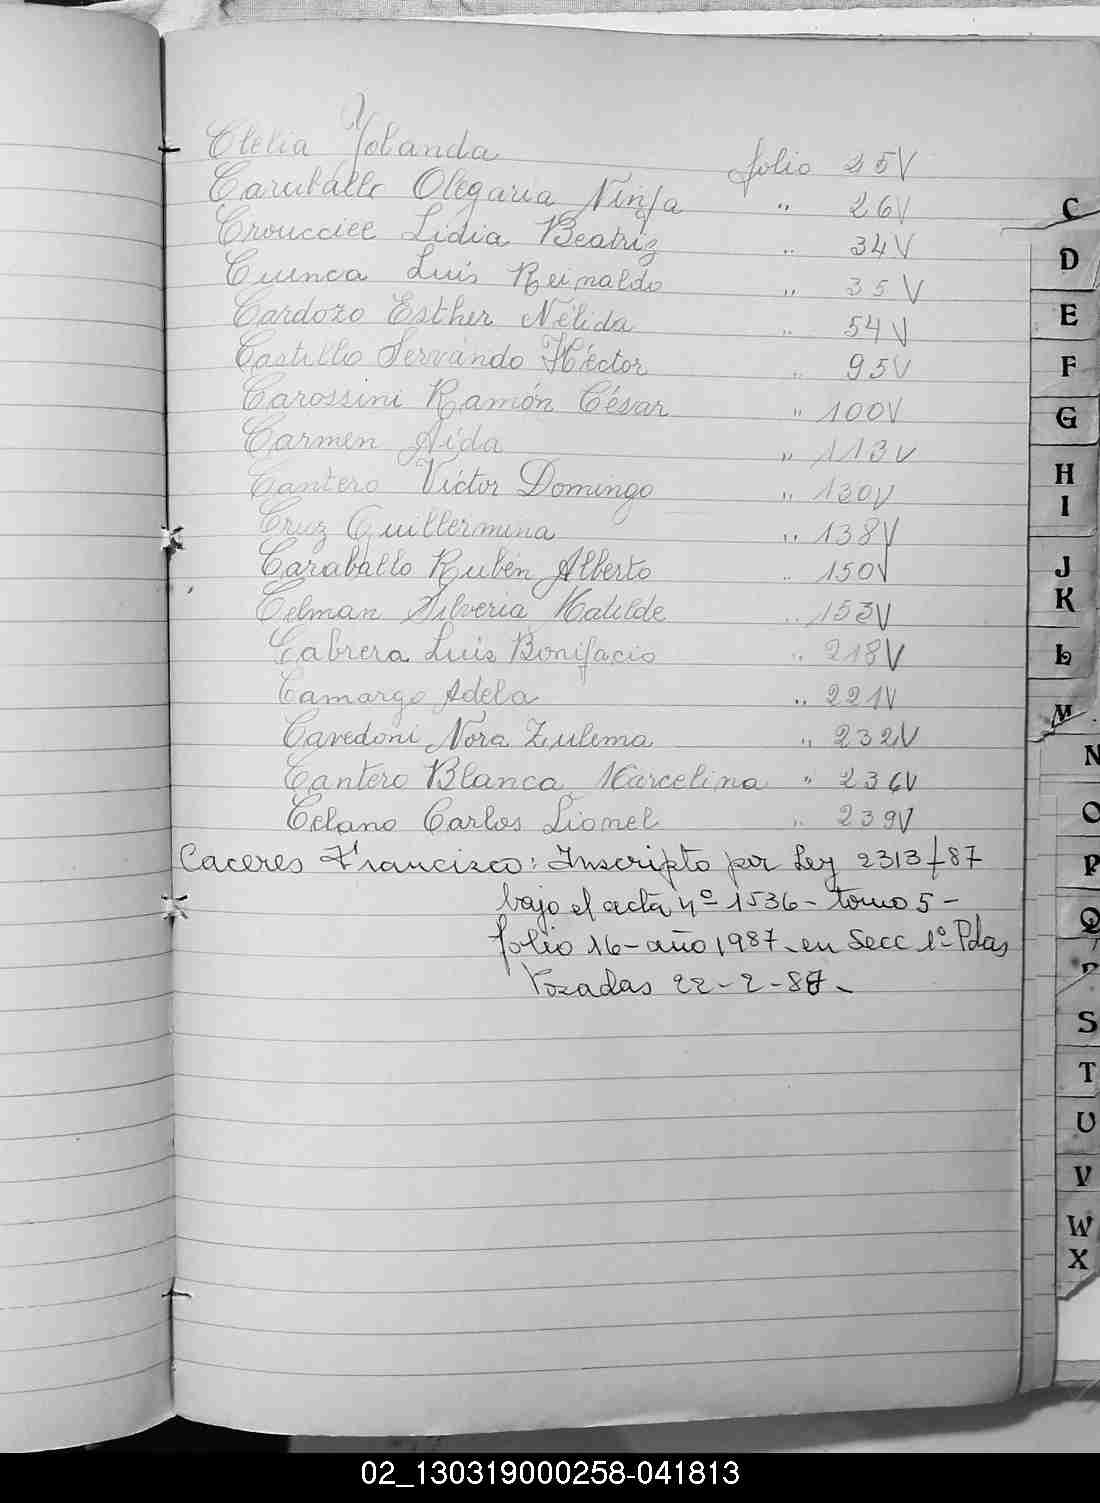 Clelia Yolanda folio 25V
Caraballo Olegaria Ninfa " 26V
Croucciee Lidia Beatriz " 34V
Cuenca Luis Reinaldo " 35V
Cardozo Esther Nélida " 54V
Castillo Servando Héctor " 95V
Carossini Ramón César " 100V
Carmen Aída " 113V
Cantero Víctor Domingo " 130V
Cruz Guillermina " 138V
Caraballo Rubén Alberto " 150V
Celman Silveria Matilde " 153V
Cabrera Luis Bonifacio " 218V
Camargo Adela " 221V
Cavedoni Nora Zulema " 232V
Cantero Blanca Marcelina " 236V
Celano Carlos Lionel " 239V
Caceres Francisco: Inscripto por Ley 2313/87
bajo el acta nº 1536 - tomo 5 -
folio 16 - año 1987 - en Secc 1º Pdas
Posadas 22-2-88 -
C
D
E
F
G
H
I
J
K
L
M
N
O
P
Q
S
T
U
V
W
X
02_130319000258-041813